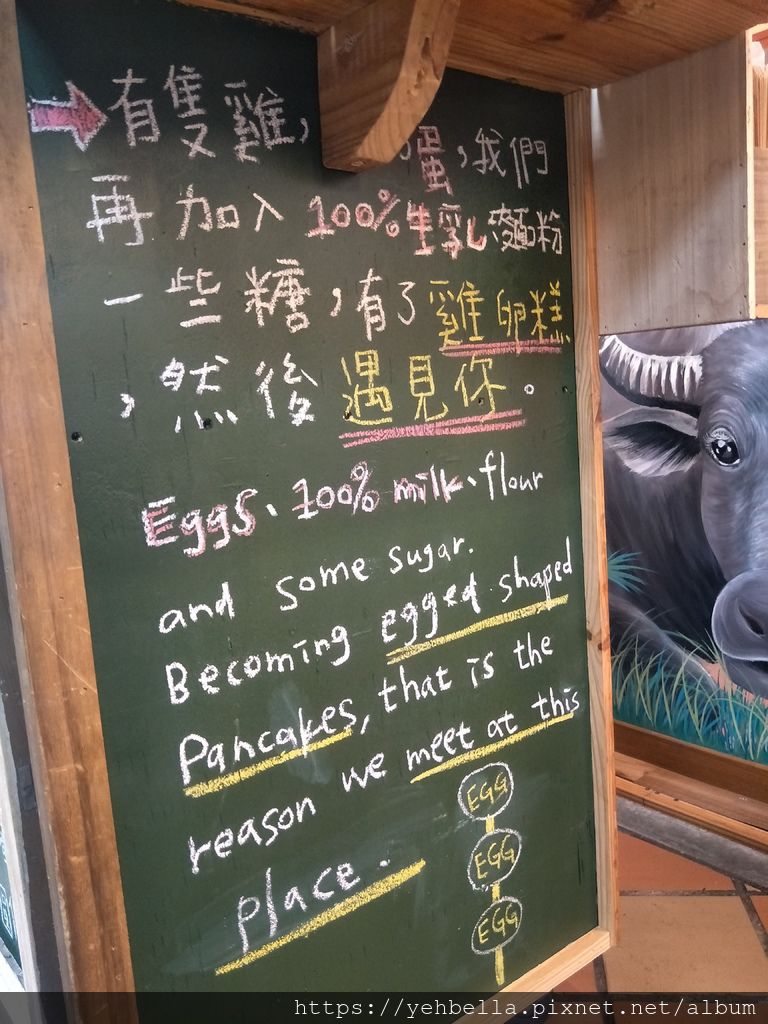 有隻雞, 蛋,我們
再加入100%生乳麵粉
一些糖,有了雞卵糕
,然後遇見你。
Eggs、100% milk、flour
and some sugar.
Becoming egged shaped
Pancakes, that is the
reason we meet at this
place.
EGG
EGG
EGG
https://yehbella.pixnet.net/album